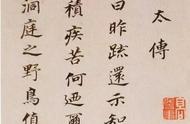 太傅
日昨疏還示知
積疾苦何迺爾
洞庭之野鳥